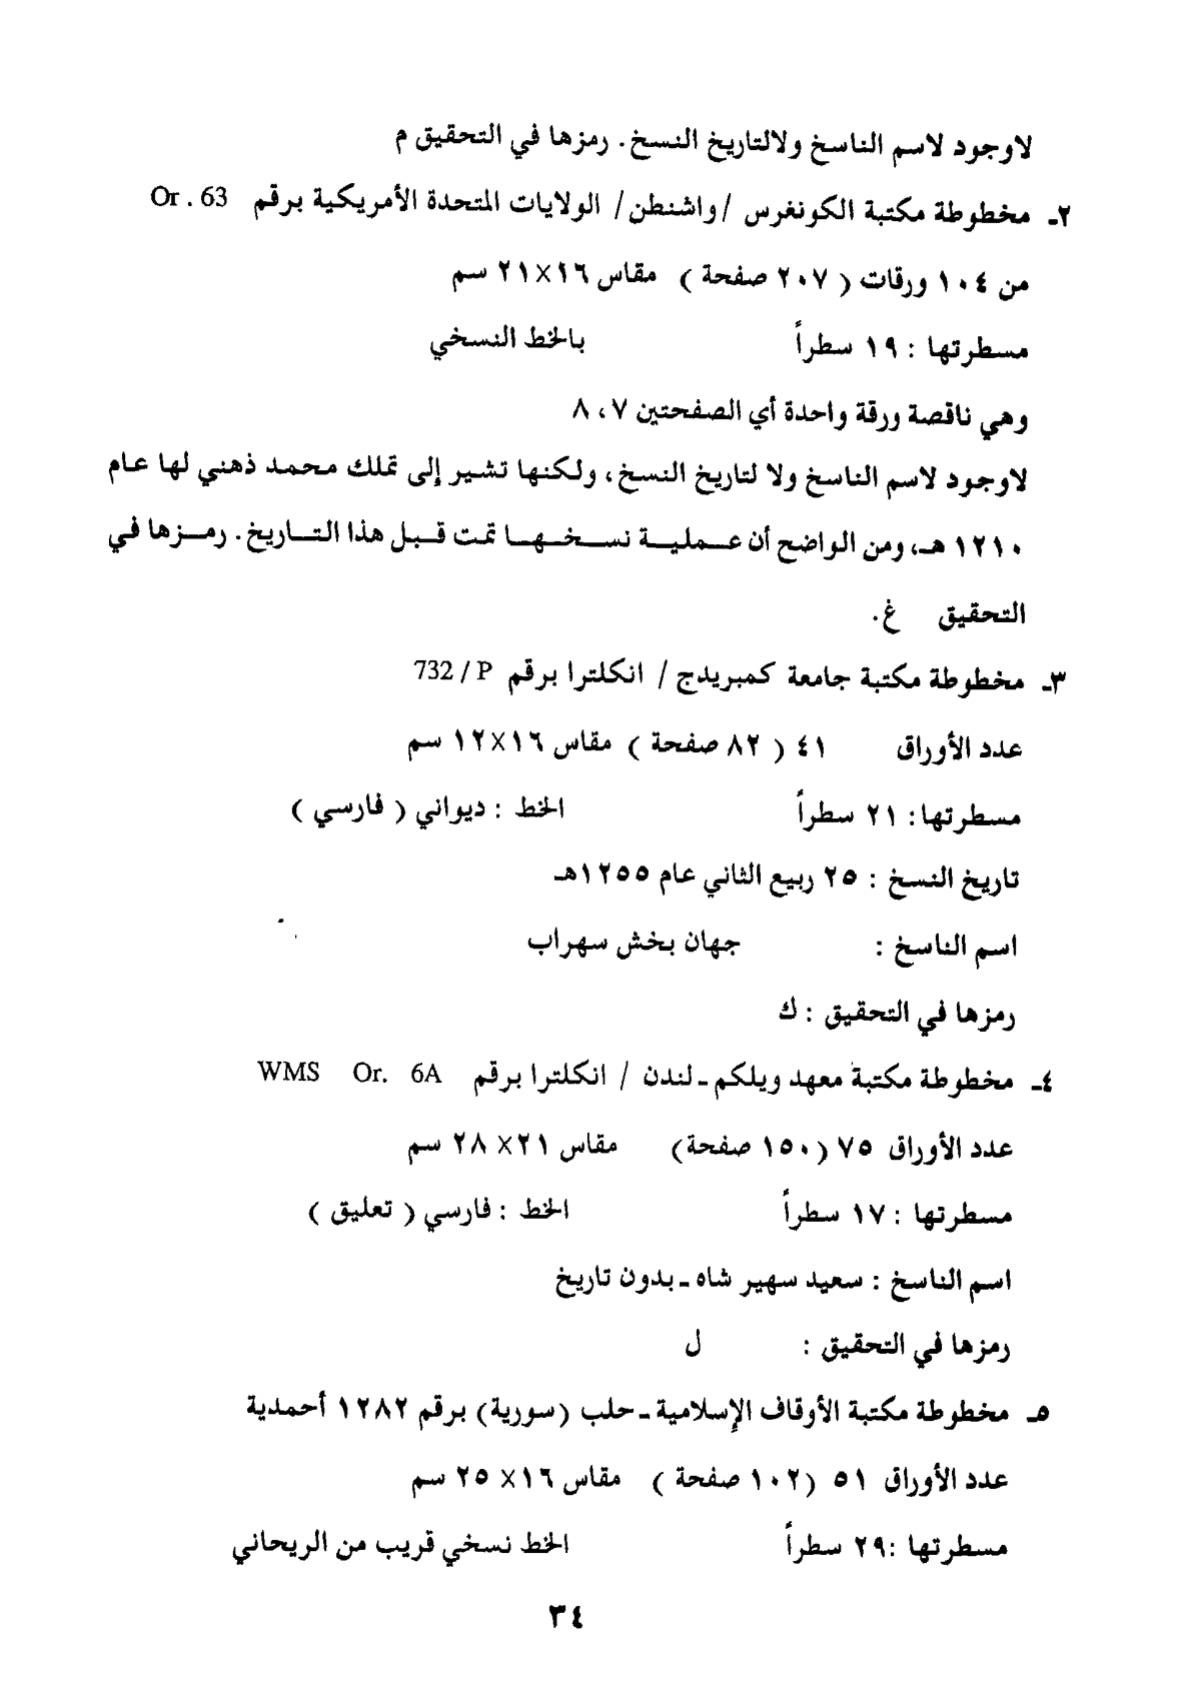 لاوجود لاسم الناسخ ولالتاريخ النسخ. رمزها في التحقيق م
٢ـ مخطوطة مكتبة الكونغرس /واشنطن/ الولايات المتحدة الأمريكية برقم Or . 63
من ١٠٤ ورقات ( ٢٠٧ صفحة ) مقاس ١٦×٢١ سم
مسطرتها : ١٩ سطراً بالخط النسخي
وهي ناقصة ورقة واحدة أي الصفحتين ٧، ٨
لاوجود لاسم الناسخ ولا لتاريخ النسخ، ولكنها تشير إلى تملك محمد ذهني لها عام
١٢١٠ هـ، ومن الواضح أن عـمليـة نسـخـهـا تمت قـبل هذا التـاريخ. رمـزها في
التحقيق غ.
٣ـ مخطوطة مكتبة جامعة كمبريدج / انكلترا برقم 732 / P
عدد الأوراق ٤١ ( ٨٢ صفحة ) مقاس ١٦×١٢ سم
مسطرتها: ٢١ سطراً الخط : ديواني ( فارسي )
تاريخ النسخ : ٢٥ ربيع الثاني عام ١٢٥٥هـ
اسم الناسخ : جهان بخش سهراب
رمزها في التحقيق : ك
٤ـ مخطوطة مكتبة معهد ويلكم ـ لندن / انكلترا برقم WMS Or. 6A
عدد الأوراق ٧٥ (١٥٠ صفحة) مقاس ٢١× ٢٨ سم
مسطرتها : ١٧ سطراً الخط : فارسي ( تعليق )
اسم الناسخ : سعيد سهير شاه ـ بدون تاريخ
رمزها في التحقيق : ل
٥ـ مخطوطة مكتبة الأوقاف الإسلامية ـ حلب (سورية) برقم ١٢٨٢ أحمدية
عدد الأوراق ٥١ (١٠٢ صفحة ) مقاس ١٦× ٢٥ سم
مسطرتها :٢٩ سطراً الخط نسخي قريب من الريحاني
٣٤